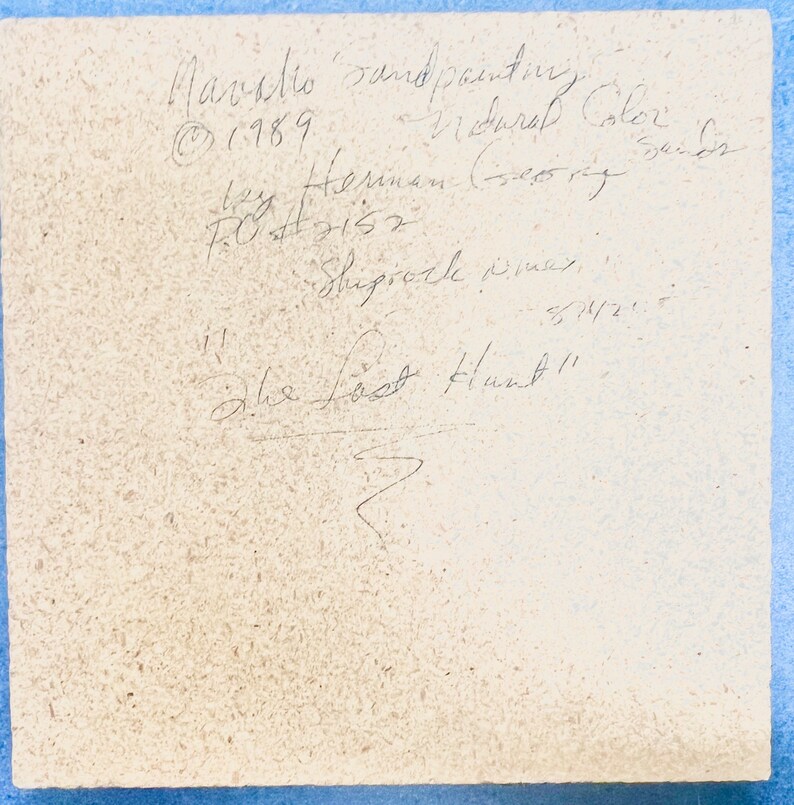 Navaho Sandpainting
© 1989 Natural Color Sands
by Herman George
P.O # 2152
Shiprock N.Mex
87421
"The Last Hunt"